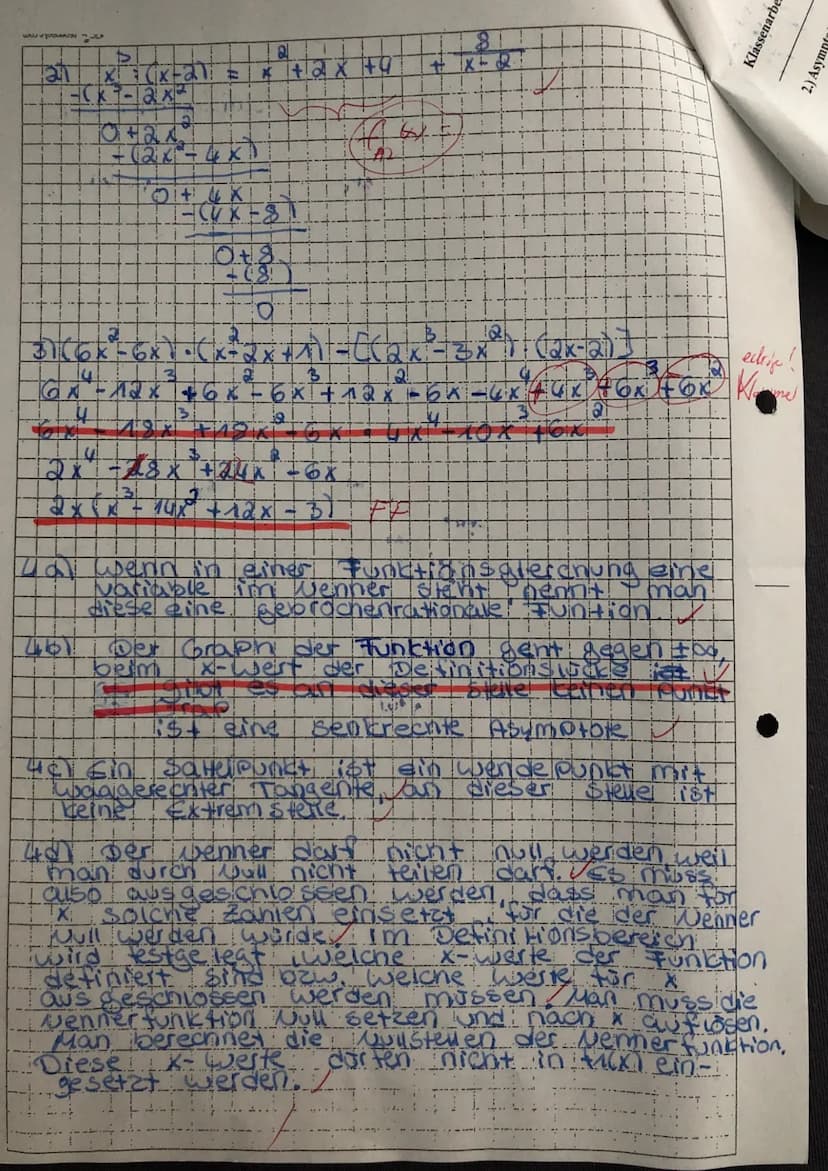 Klassenarbe
2.) Asympt
2) x³ : (x-2) = x² + 2x + 4 + 8/(x-2) ✓
-(x³ - 2x²
0 + 2x²
-(2x² - 4x)
0 + 4x
-(4x - 8)
0 + 8
-(8)
0
3) (6x² - 6x) · (x² - 2x + 1) - [(2x³ - 3x²) · (2x-2)]
6x⁴ - 12x³ + 6x² - 6x³ + 12x² - 6x - 4x⁴ + 4x³ + 6x³ + 6x²
6x⁴ - 18x³ + 18x² - 6x - 4x⁴ - 10x³ + 6x²
2x⁴ - 28x³ + 24x² - 6x
2x (x³ - 14x² + 12x - 3) FF
4a) Wenn in einer Funktionsgleichung eine
Variable im Nenner steht nennt man
diese eine gebrochenrationale Funtion. ✓
4b) Der Graph der Funktion geht gegen ±∞,
beim x-Wert der Definitionslücke ist ✓
gibt es an dieser Stelle keinen Punkt
ist eine senkrechte Asymptote ✓
4c) Ein Sattelpunkt ist ein Wendepunkt mit
waagerechter Tangente, an dieser Stelle ist
keine Extremstelle.
4d) Der Nenner darf nicht null werden, weil
man durch Null nicht teilen darf. Es muss
also ausgeschlossen werden, dass man für
x solche Zahlen einsetzt, für die der Nenner
Null werden würde. Im Definitionsbereich
wird festgelegt, welche x-Werte der Funktion
definiert sind bzw. welche Werte für x
ausgeschlossen werden müssen. Man muss die
Nennerfunktion Null setzen und nach x auflösen.
Man berechnet die Nullstellen der Nennerfunktion.
Diese x-Werte dürfen nicht in f(x) ein-
gesetzt werden.